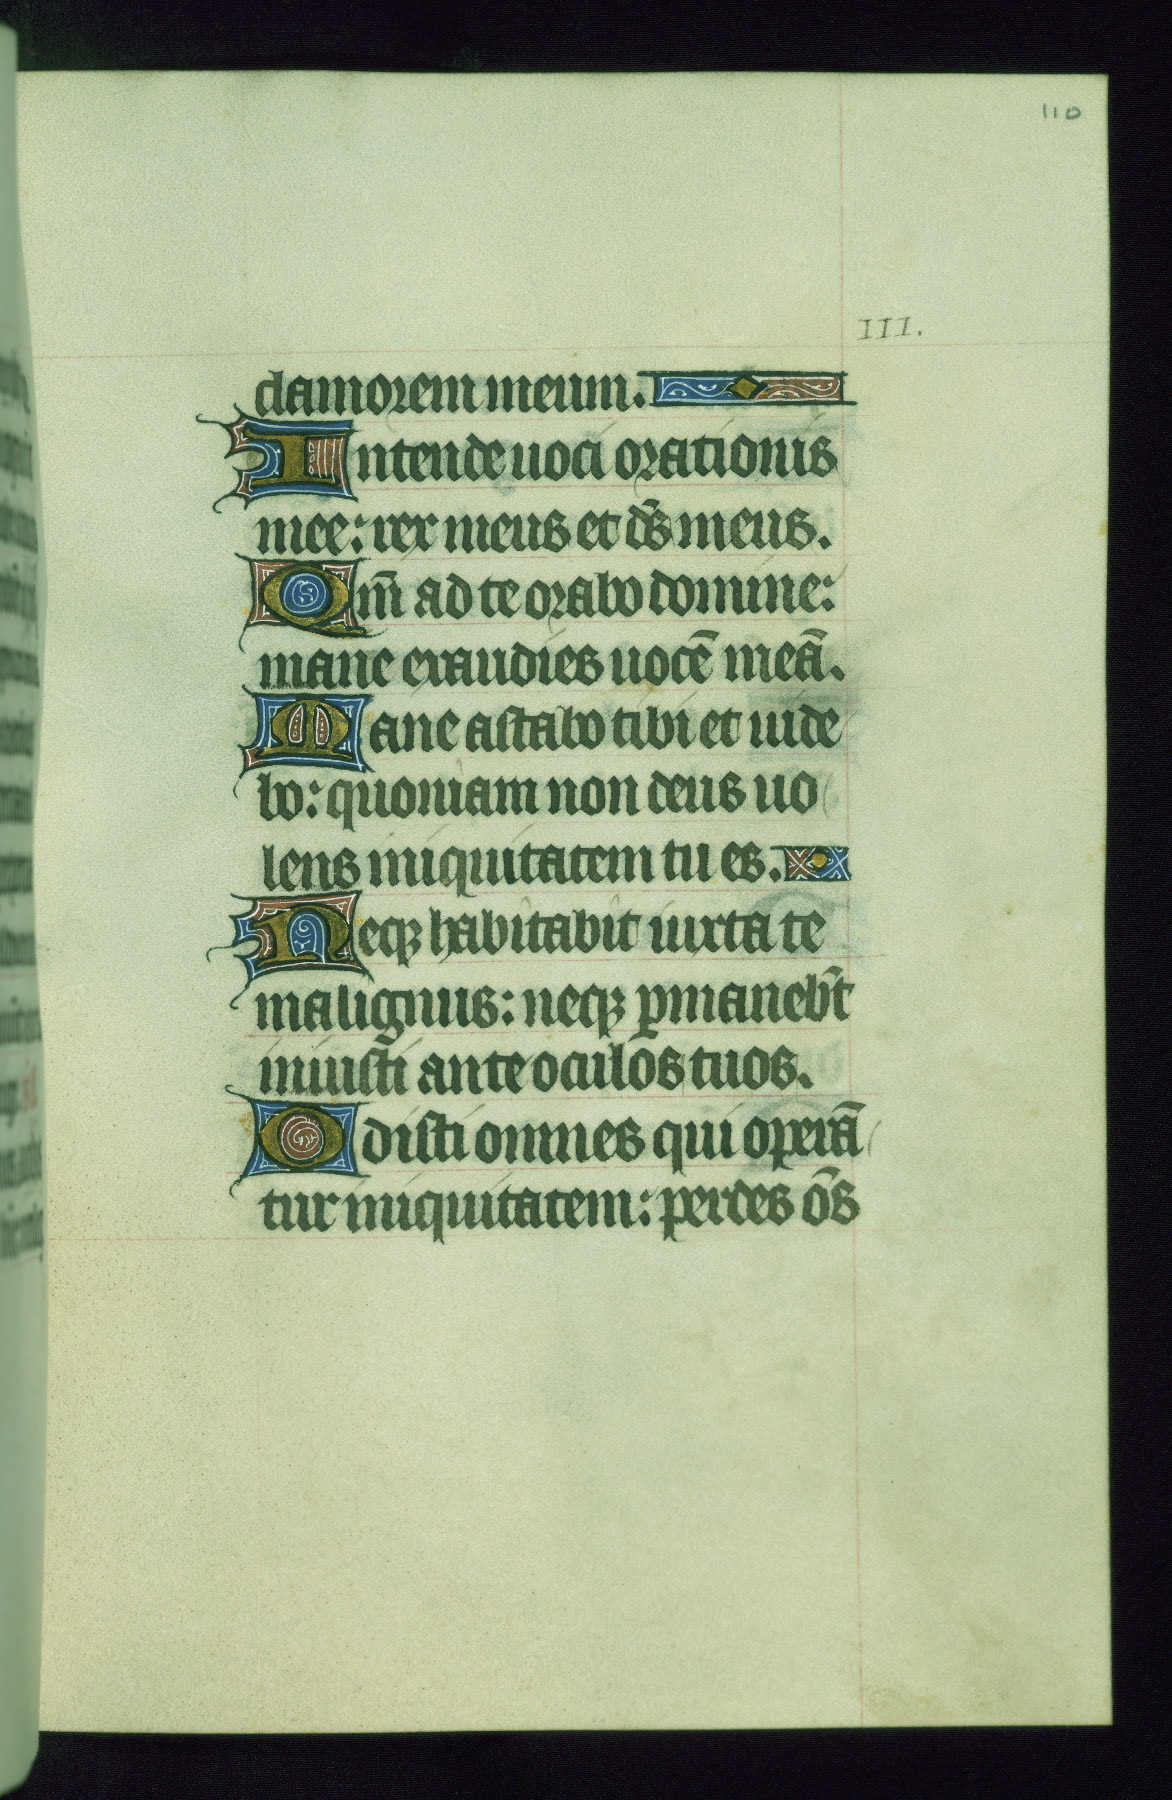 110
III.
clamorem meum.
Intende uoci orationis
mee: rex meus et ds̄ meus.
Qm̄ ad te orabo domine:
mane exaudies uocē meā.
Mane astabo tibi et uide
bo: quoniam non deus uo
lens iniquitatem tu es.
Neqꝫ habitabit iuxta te
malignus: neqꝫ ꝑmaneb̄t
iniusti ante oculos tuos.
Odisti omnes qui operā
tur iniquitatem: perdes om̄s